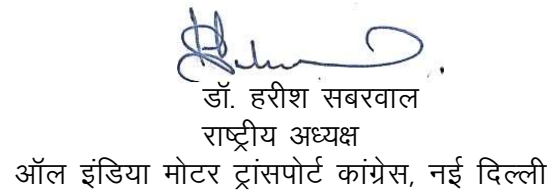 डॉ. हरीश सबरवाल
राष्ट्रीय अध्यक्ष
ऑल इंडिया मोटर ट्रांसपोर्ट कांग्रेस, नई दिल्ली